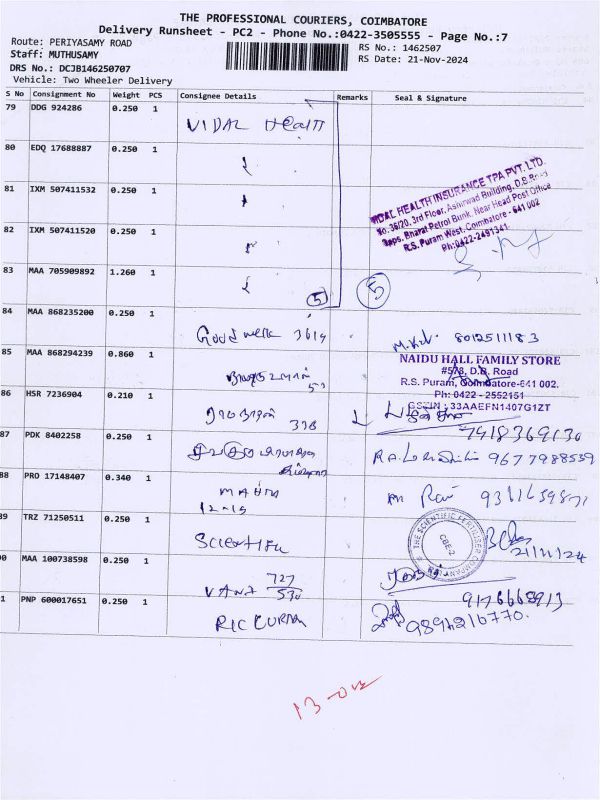 THE PROFESSIONAL COURIERS, COIMBATORE
Delivery Runsheet - PC2 - Phone No.:0422-3505555 - Page No.:7
Route: PERIYASAMY ROAD
RS No.: 1462507
Staff: MUTHUSAMY
RS Date: 21-Nov-2024
DRS No.: DCJB146250707
Vehicle: Two Wheeler Delivery
S No Consignment No Weight PCS Consignee Details Remarks Seal & Signature
79 DDG 924286 0.250 1 VIDAL Health
80 EDQ 17688887 0.250 1
81 IXM 507411532 0.250 1
82 IXM 507411520 0.250 1
VIDAL HEALTH INSURANCE TPA PVT. LTD.
No.36/20, 3rd Floor, Ashirwad Building, D.B.Road
Opps. Bharat Petrol Bunk, Near Head Post Office
R.S. Puram West, Coimbatore - 641 002
Ph:0422-2491341
83 MAA 705909892 1.260 1 5 5
84 MAA 868235200 0.250 1 Good work 3619 8012511183
85 MAA 868294239 0.860 1
NAIDU HALL FAMILY STORE
#578, D.B. Road
R.S. Puram, Coimbatore-641 002.
Ph: 0422 - 2552151
GSTIN : 33AAEFN1407G1ZT
86 HSR 7236904 0.210 1 ராமநாதன் 338
7418369130
87 PDK 8402258 0.250 1 9677988539
88 PRO 17148407 0.340 1 12-15
89 TRZ 71250511 0.250 1 Scientific
THE SCIENTIFIC FERTILISER COMPANY
CBE-2
21/11/24
0 MAA 100738598 0.250 1 727 530
9176668913
1 PNP 600017651 0.250 1
9894216770.